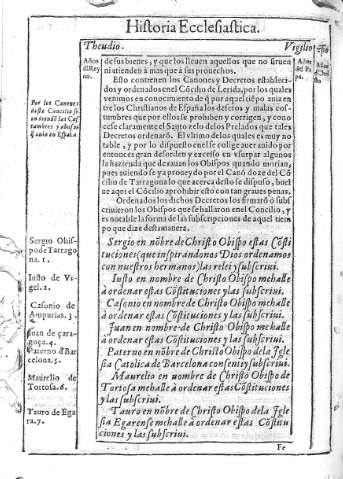 Historia Ecclesiastica.
Theudio.
Vigilio
Años
del Rey
no.
Años
del Pa
pa.
de sus bienes, y que los lleuen aquellos que no siruen
ni atienden à mas que à sus prouechos.
Esto contienen los Canones y Decretos estableci-
dos y ordenados en el Cõcilio de Lerida, por los quales
venimos en conocimiento de q̃ por aquel tiẽpo auia en
tre los Christianos de España los defetos y malas cos-
tumbres que por ellos se prohiben y corrigen, y cono-
cese claramente el Santo zelo de los Prelados que tales
Decretos ordenarõ. El vltimo de los quales es muy no
table, y por lo dispuesto en el se colige auer auido por
entonces gran desorden y excesso en vsurpar algunos
la hazienda que dexauan los Obispos quando morian,
pues auiendose ya proueydo por el Canõ doze del Cõ
cilio de Tarragona lo que acerca desto se dispuso, buel
ue aqui el Cõcilio a prohibir esto con tan graues penas.
Ordenados los dichos Decretos los firmarõ o subs
criuieron los Obispos que se hallaron en el Concilio, y
es notable la forma de las subscripciones de aquel tiem
po que dize desta manera.
Por los Canones
deste Concilio se
en tendẽ las Cos
tumbres y abusos
q̃ auia en España
Sergio en nõbre de Christo Obispo estas Cõsti
tuciones (que inspirandonos Dios ordenamos
con nuestros hermanos) las relei y subscriui.
Iusto en nombre de Christo Obispo me halle
à ordenar estas Cõstituciones y las subscriui.
Casonio en nombre de Christo Obispo me halle
à ordenar estas Constituciones y las subscriui.
Juan en nombre de Christo Obispo me halle
à ordenar estas Cõstituciones y las subscriui.
Paterno en nõbre de Christo Obispo de la Igle
sia Catolica de Barcelona consenti y subscriui.
Maurelio en nombre de Christo Obispo de
Tortosa me halle à ordenar estas Cõstituciones
y las subscriui.
Tauro en nõbre de Christo Obispo de la Igle
sia Egarense me halle à ordenar estas Constitu
ciones y las subscriui.
Sergio Obis-
po de Tarrago
na. 1.
Iusto de Vr-
gel. 2.
Casonio de
Ampurias. 3.
Juan de çara-
goça. 4.
Paterno d̃ Bar
celona. 5.
Maurelio de
Tortosa. 6.
Tauro de Ega
ra. 7.
Fe